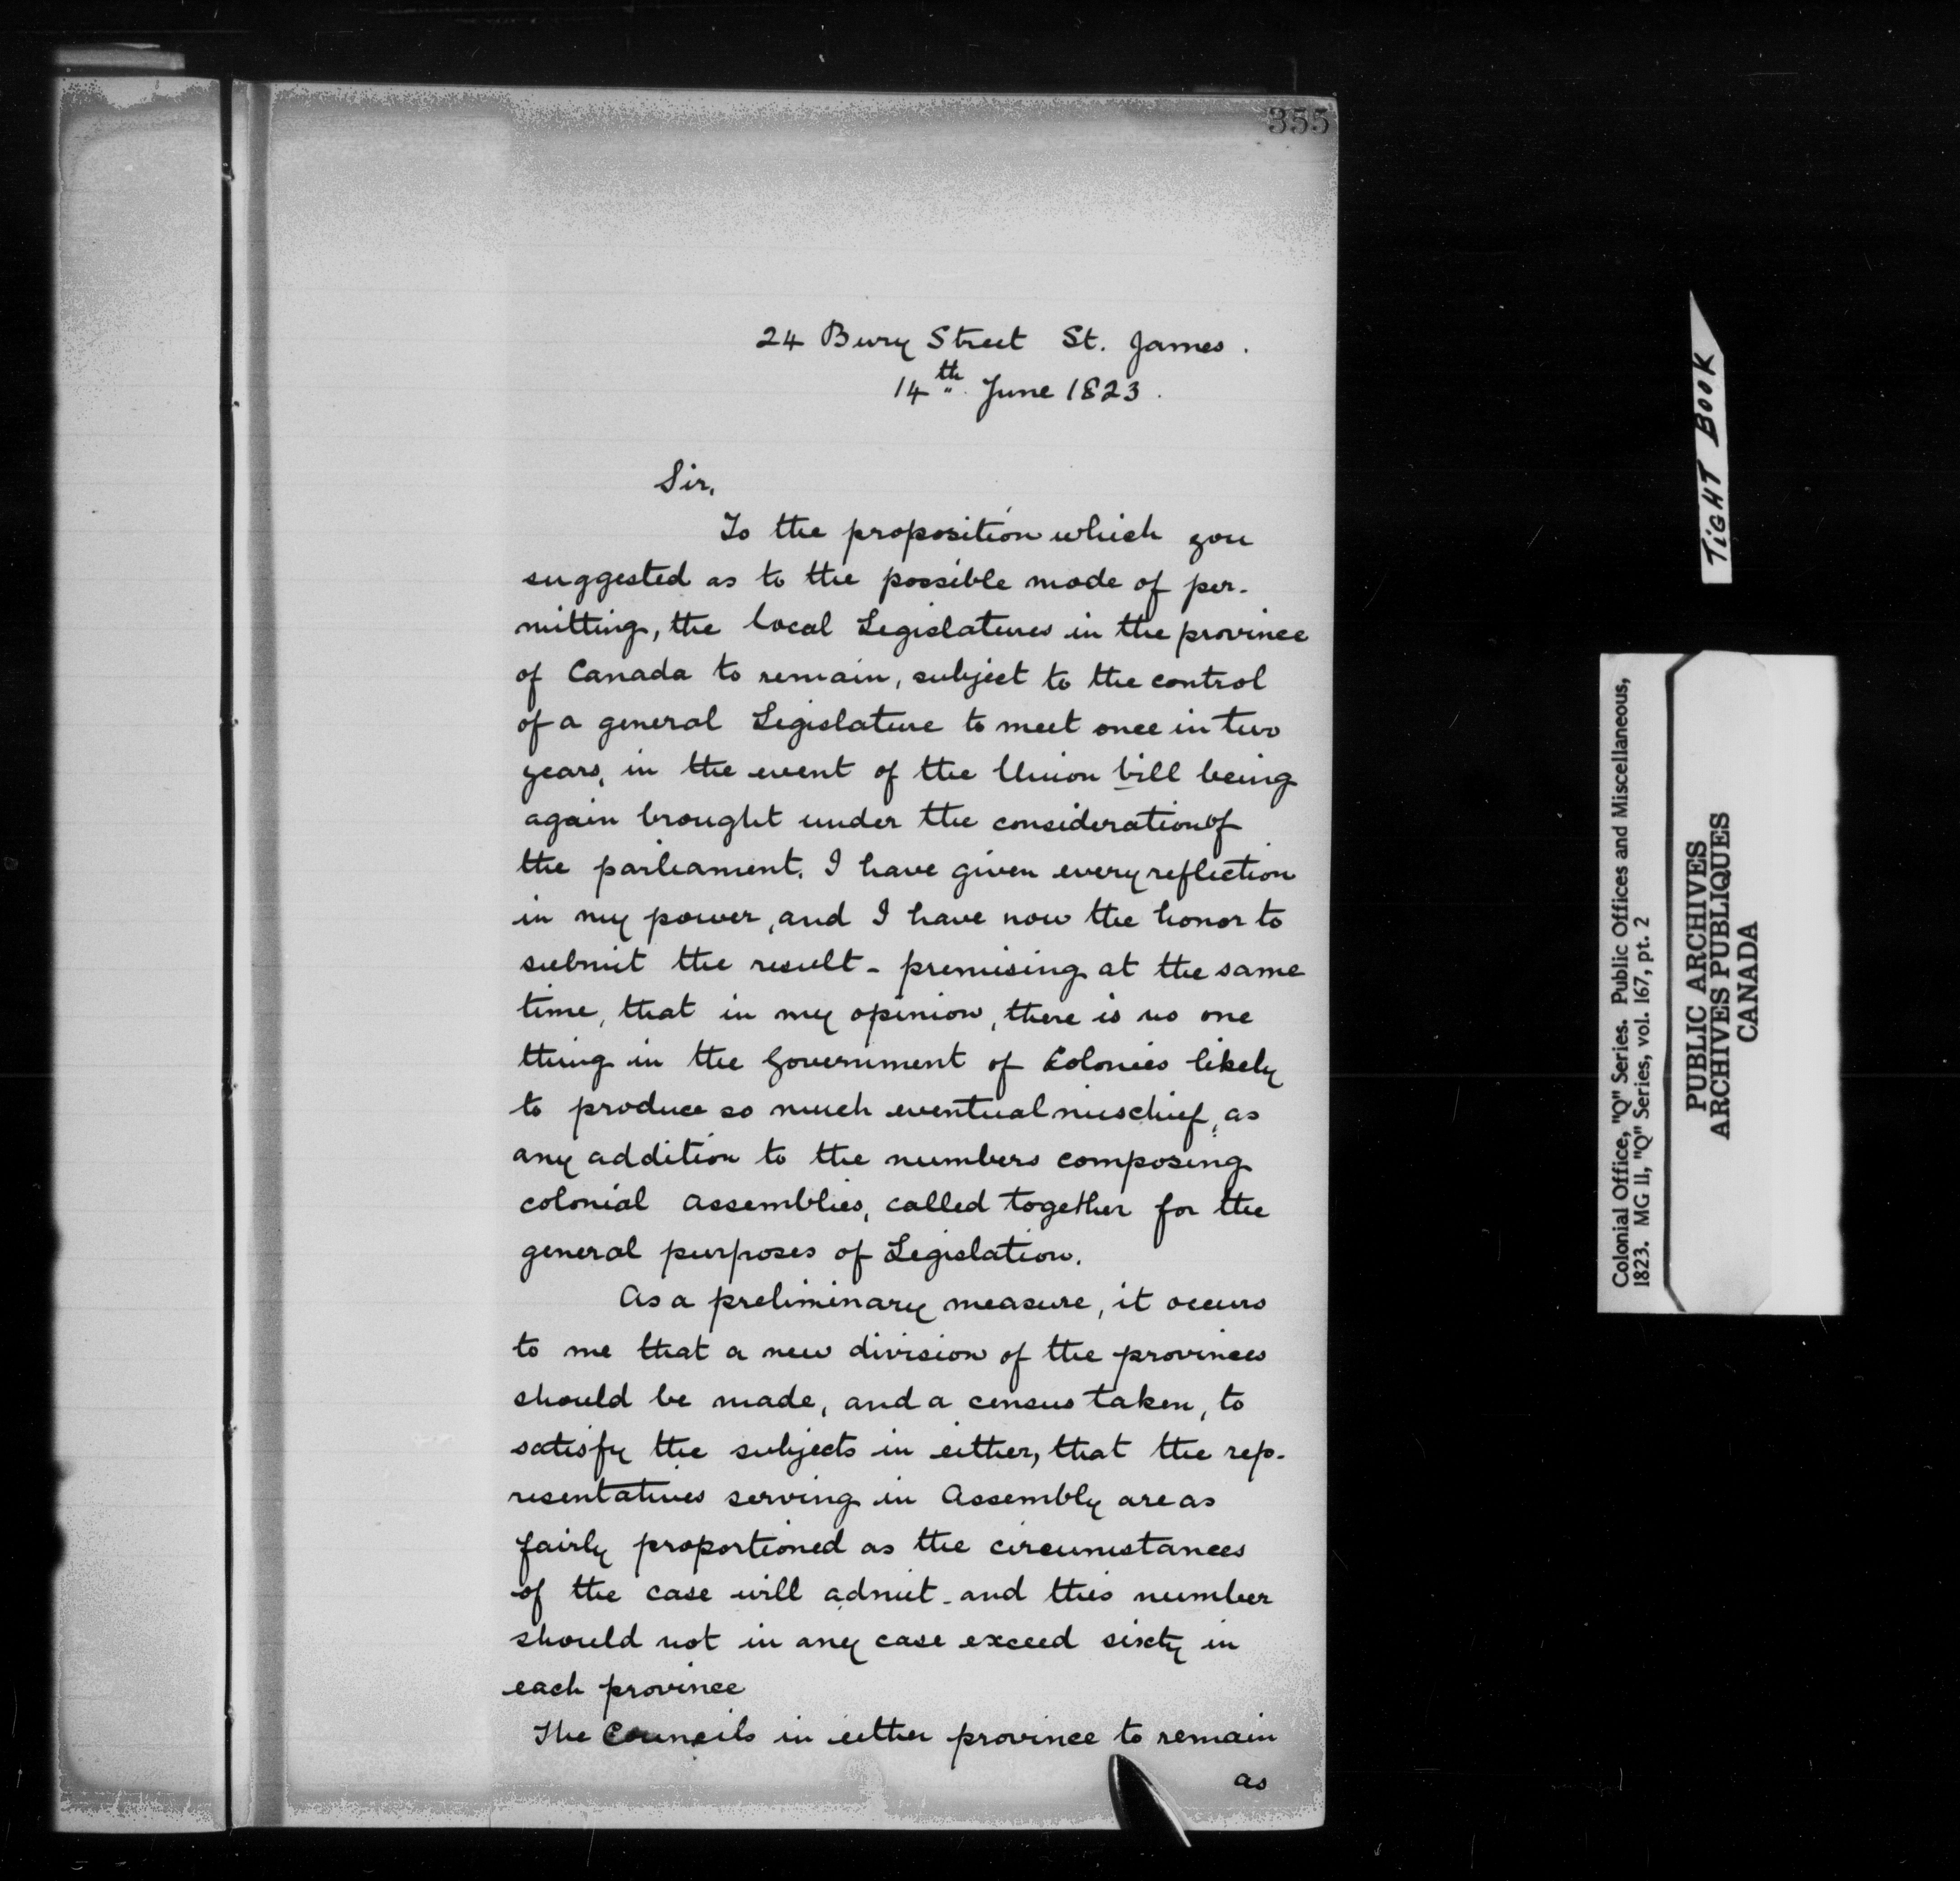 355
24 Bury Street St. James.
14th June 1823.
Sir,
To the proposition which you
suggested as to the possible mode of per-
mitting, the local Legislatures in the province
of Canada to remain, subject to the control
of a general Legislature to meet once in two
years, in the event of the Union bill being
again brought under the consideration of
the parliament. I have given every reflection
in my power, and I have now the honor to
submit the result - premising at the same
time, that in my opinion, there is no one
thing in the Government of Colonies likely
to produce so much eventual mischief, as
any addition to the numbers composing
colonial Assemblies, called together for the
general purposes of Legislation.
As a preliminary measure, it occurs
to me that a new division of the provinces
should be made, and a census taken, to
satisfy the subjects in either, that the rep-
resentatives serving in Assembly are as
fairly proportioned as the circumstances
of the case will admit - and this number
should not in any case exceed sixty in
each province
The Councils in either province to remain
as
TIGHT BOOK
Colonial Office, "Q" Series. Public Offices and Miscellaneous,
1823. MG 11, "Q" Series, vol. 167, pt. 2
PUBLIC ARCHIVES
ARCHIVES PUBLIQUES
CANADA